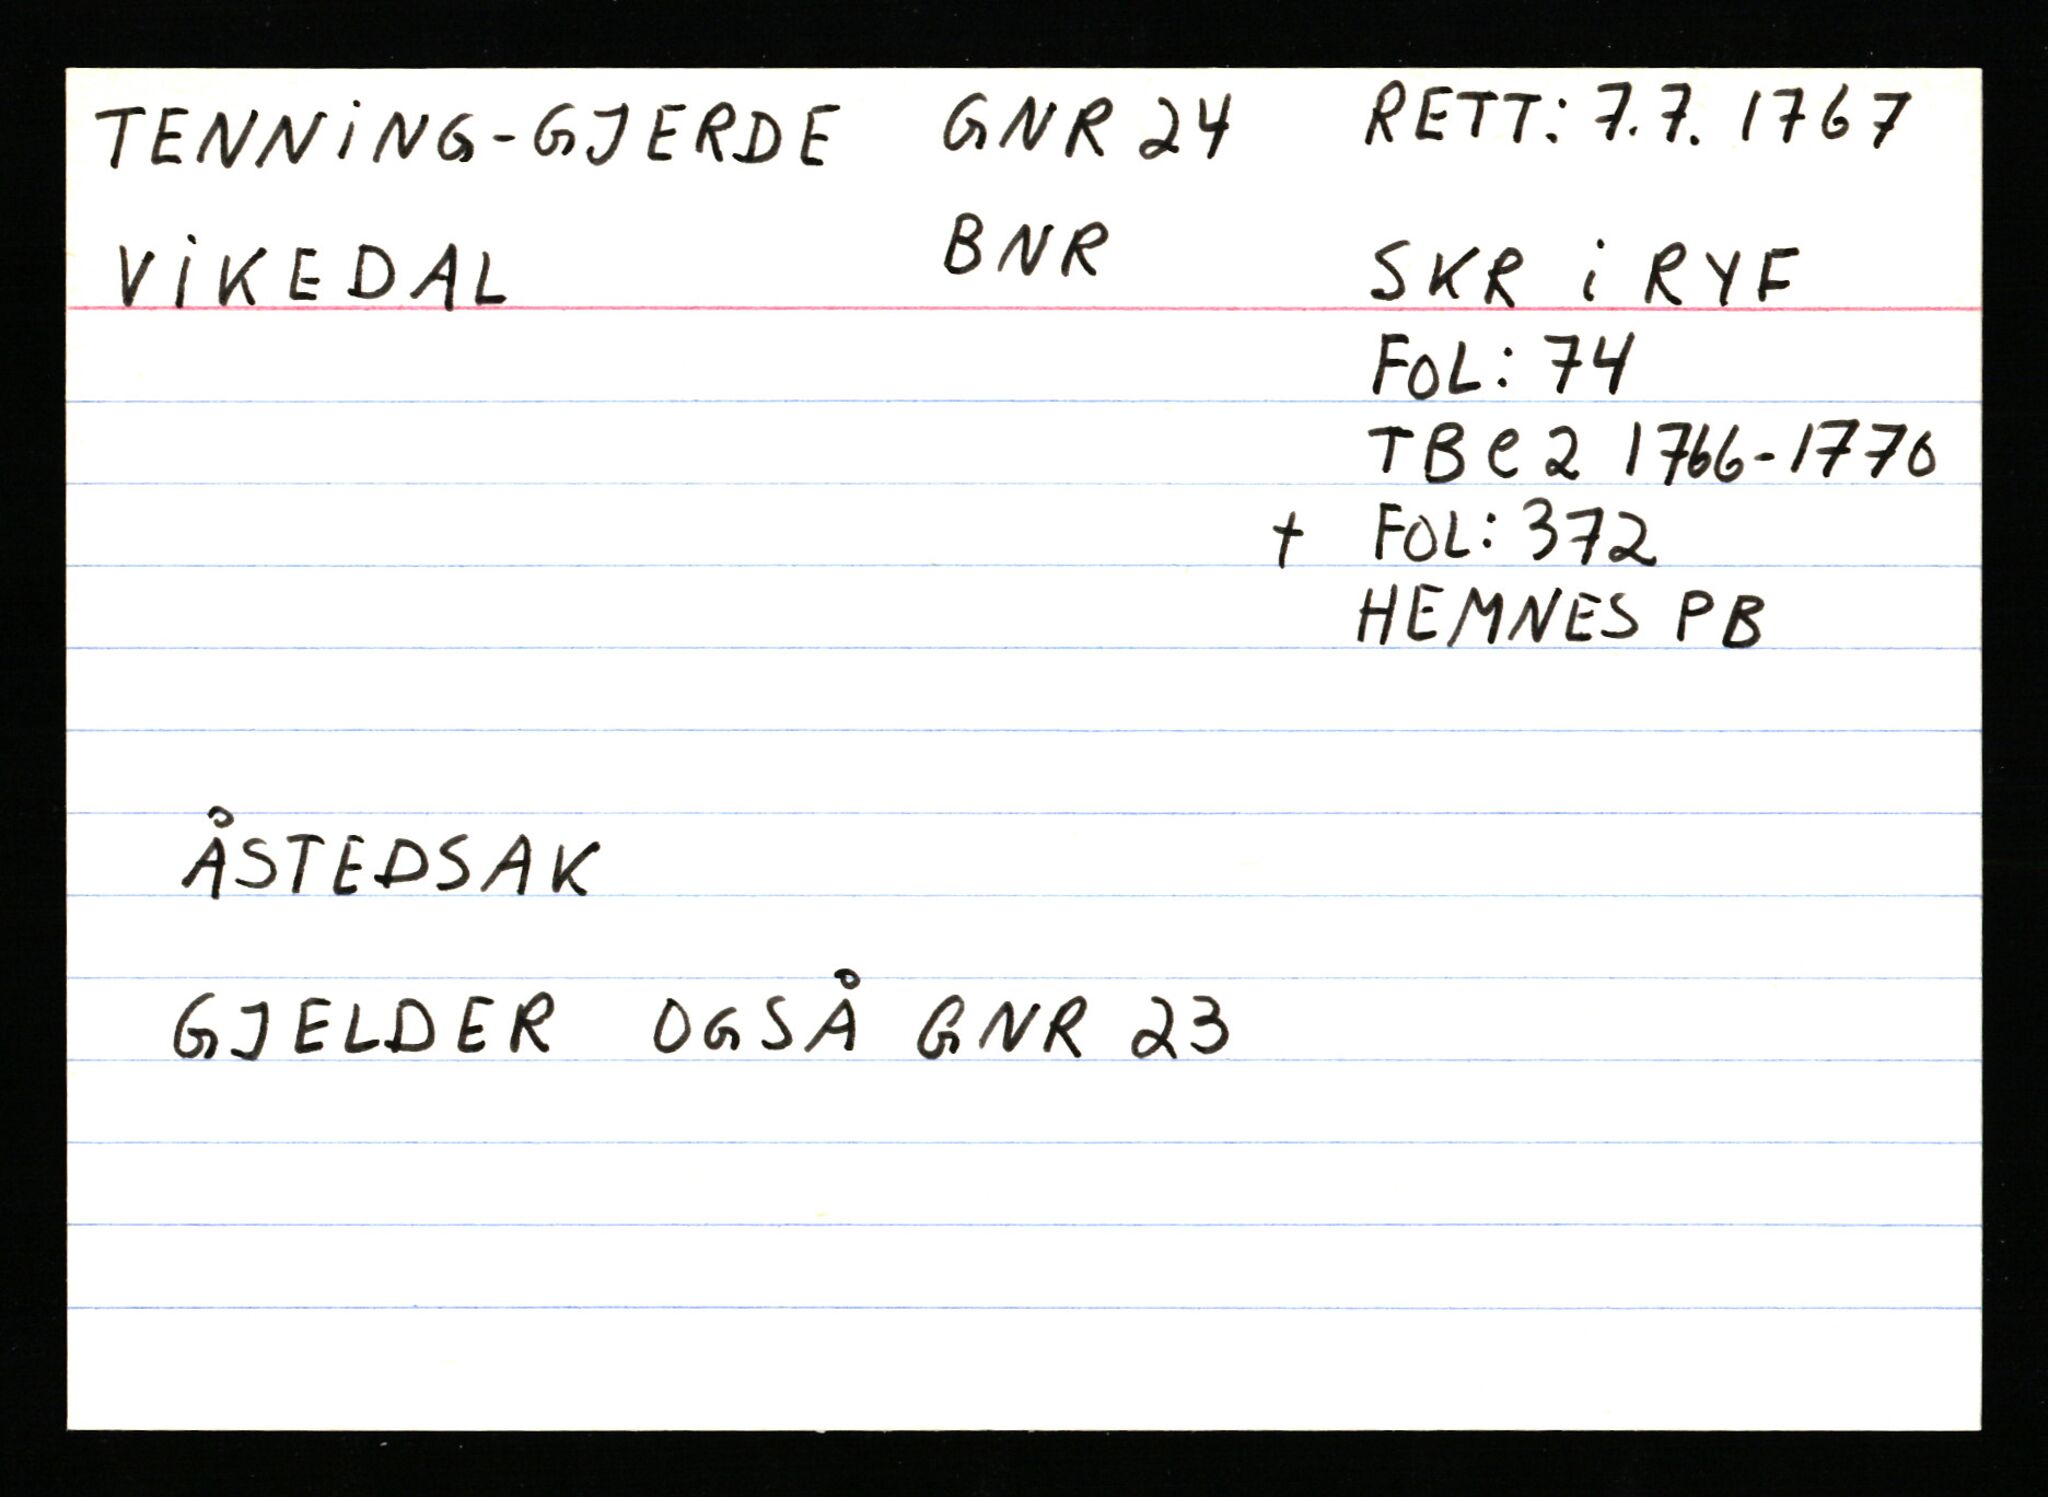 TENNiNG-GJERDE GNR 24 RETT: 7.7. 1767
VIKEDAL BNR SKR i RYF
FOL: 74
TB e 2 1766-1770
+ FOL: 372
HEMNES PB
ÅSTEDSAK
GJELDER OGSÅ GNR 23